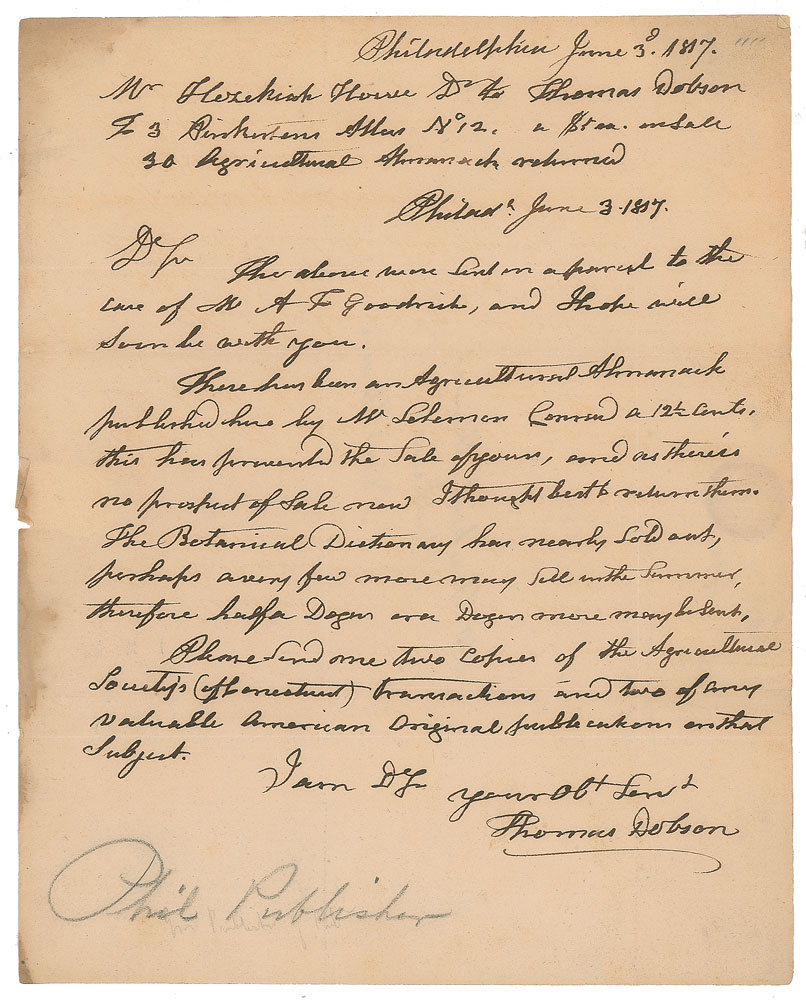 Philadelphia June 3d. 1817.
Mr Hezekiah Howe Dr to Thomas Dobson
To 3 Pinkertons Atlas No 12. a $1 ea. on Sale
30 Agricultural Almanack returned
Philada. June 3. 1817.
Dr Sir
The above were sent in a parcel to the
care of Mr A T Goodrich, and I hope will
soon be with you.
There has been an Agricultural Almanack
published here by Mr Solomon Conrad a 12½ cents.
this has prevented the Sale of yours, and as there is
no prospect of Sale now I thought best to return them.
The Botanical Dictionary has nearly Sold out,
perhaps a very few more may Sell in the Summer,
therefore half a Dozen or a Dozen more may be Sent,
Please Send me two Copies of the Agricultural
Society's (of Conecticut) transactions and two of any
valuable American Original publications on that
Subject.
I am Dr Sir
your Obt Servt
Thomas Dobson
Phil Publisher